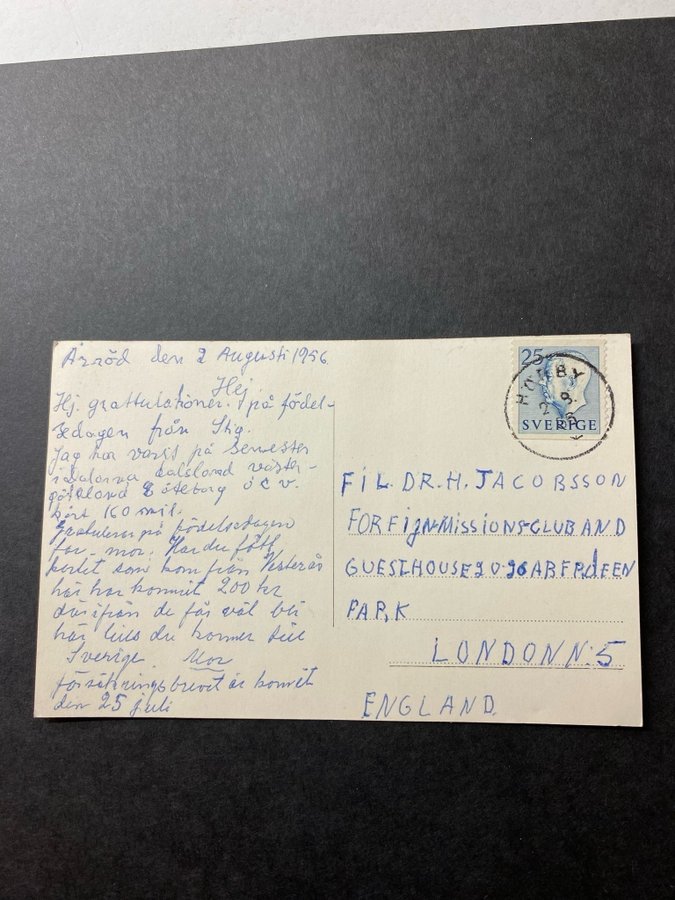 Årröd den 2 Augusti 1956
Hej
Hej. grattulationer. på födel-
sedagen från Stig.
Jag har varit på Semester
i Dalarna dalsland väster-
götaland Göteborg o s v.
kört 160 mil.
Gratulerar på födelsedagen
far. mor. Har du fått
kortet som kom från Vesterås
här har kommit 200 kr
därifrån de får väl bli
här tills du kommer till
Sverige. Mor
försäkringsbrevet är komit
den 25 juli
25
SVERIGE
HÖRBY
2 8
FIL. DR. H. JACOBSSON
FOREIGN-MISSIONS-CLUB AND
GUESTHOUSE 20-26 ABERDEEN
PARK
LONDON N: 5
ENGLAND.